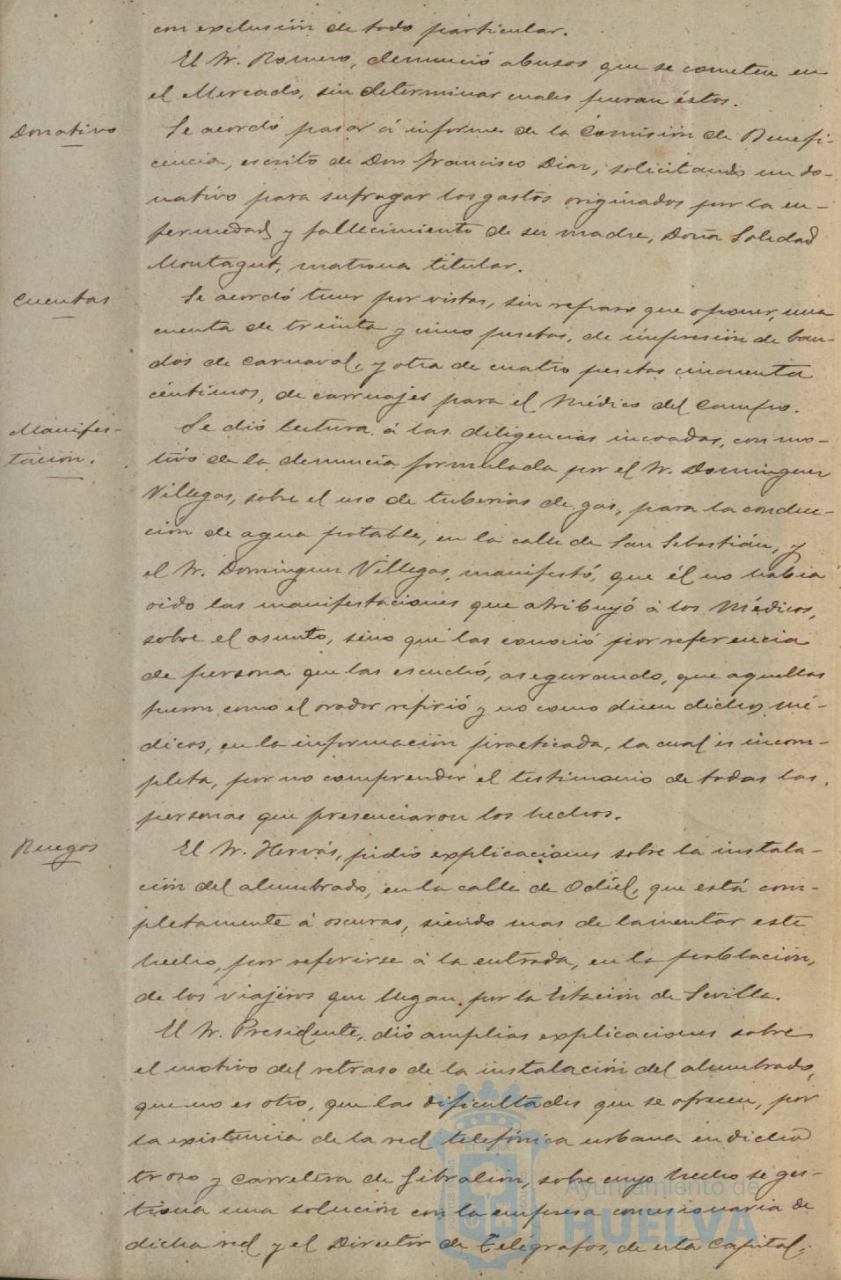 con exclusión de todo particular.
El Sr. Romero, denunció abusos que se cometen en
el Mercado, sin determinar cuales fueran éstos.
Donativo
Se acordó pasar á informe de la Comisión de Benefi-
cencia, escrito de Don Francisco Diaz, solicitando un do-
nativo para sufragar los gastos originados por la en-
fermedad y fallecimiento de su madre, Doña Soledad
Montagut, matrona titular.
Cuentas
Se acordó tener por vistas, sin reparo que oponer, una
cuenta de treinta y cinco pesetas, de impresión de ban-
dos de Carnaval, y otra de cuatro pesetas cincuenta
céntimos, de carruajes para el Médico del Campo.
Manifes-
tación.
Se dió lectura á las diligencias incoadas, con mo-
tivo de la denuncia formulada por el Sr. Dominguez
Villegas, sobre el uso de tuberias de gas, para la conduc-
ción de agua potable, en la calle de San Sebastián, y
el Sr. Dominguez Villegas, manifestó, que él no habia
oido las manifestaciones que atribuyó á los Médicos,
sobre el asunto, sino que las conoció por referencia
de persona que las escuchó, asegurando, que aquellas
fueron como el orador refirió y no como dicen dichos mé-
dicos, en la información practicada, la cual es incom-
pleta, por no comprender el testimonio de todas las
personas que presenciaron los hechos.
Ruegos
El Sr. Hervás, pidió explicaciones sobre la instala-
ción del alumbrado, en la calle de Odiel, que está com-
pletamente á oscuras, siendo mas de lamentar este
hecho, por referirse á la entrada, en la población,
de los viajeros que llegan por la Estación de Sevilla.
El Sr. Presidente, dió amplias explicaciones sobre
el motivo del retraso de la instalación del alumbrado,
que no es otro, que las dificultades que se ofrecen, por
la existencia de la red telefónica urbana en dicho
trozo y carretera de Gibraleón, sobre cuyo hecho se ges-
tiona una solución con la empresa concesionaria de
dicha red y el Director de Telégrafos, de esta Capital.
Ayuntamiento de
HUELVA